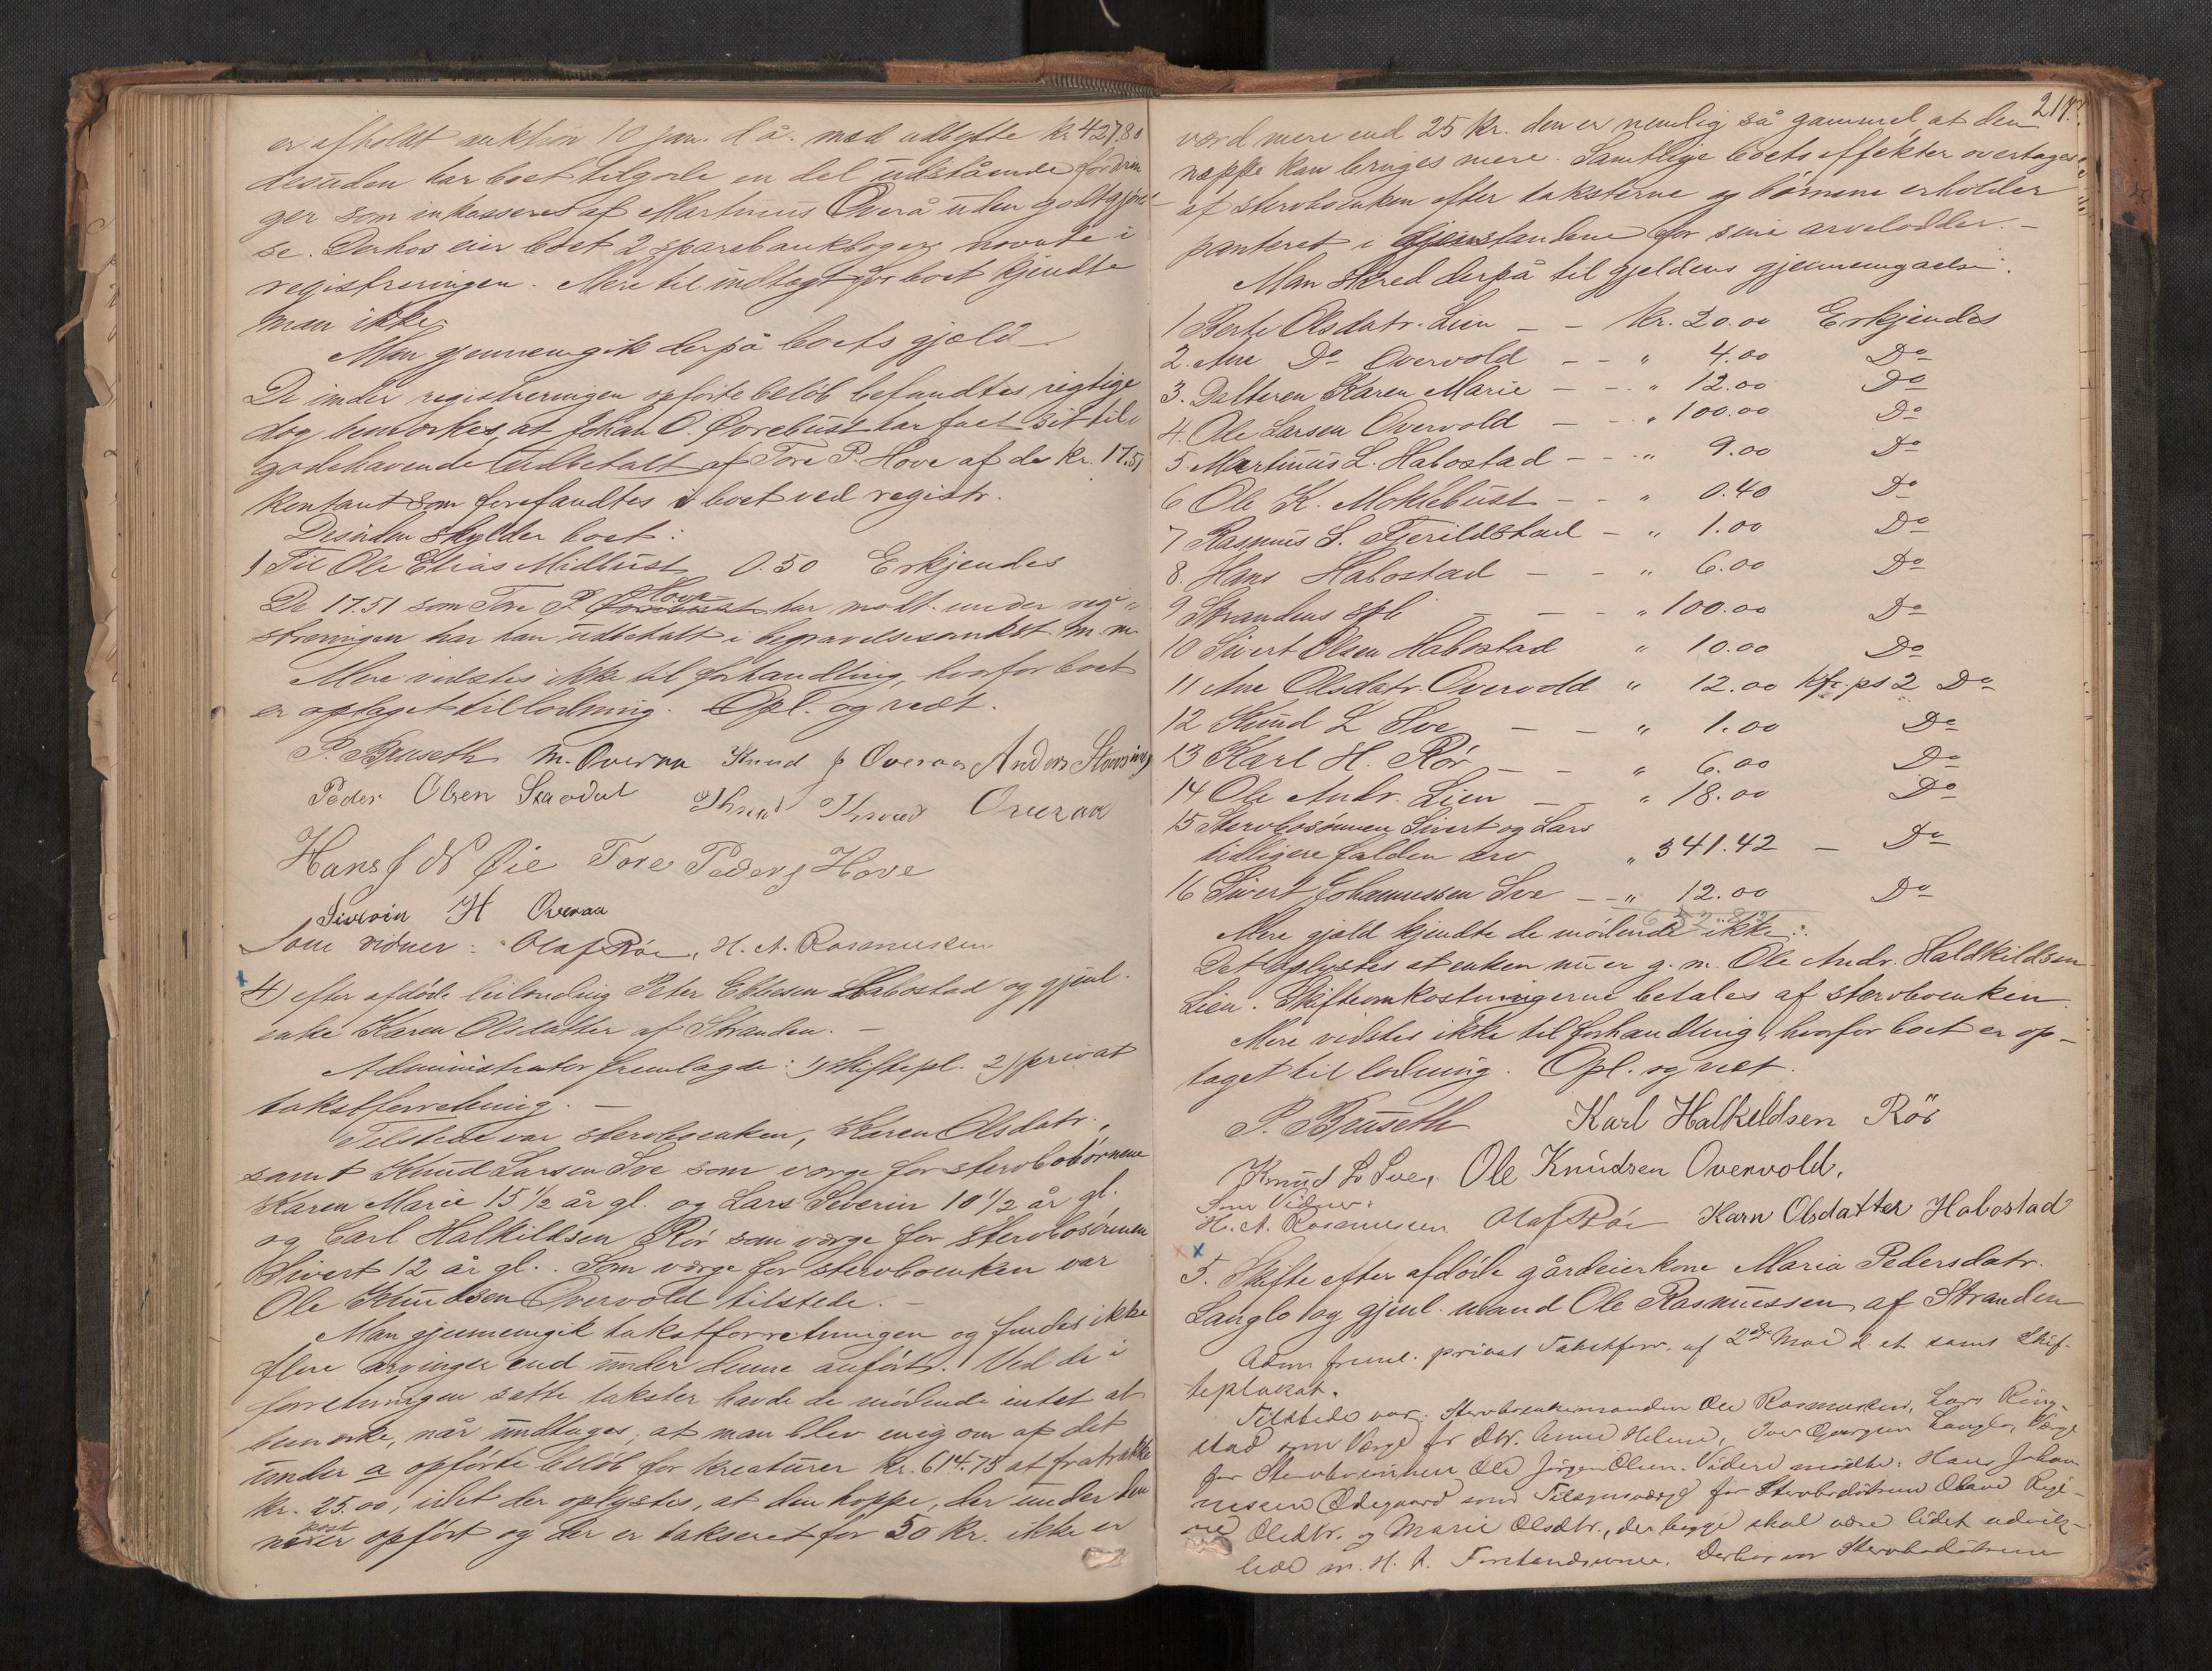 er afholdt auktion 10 jan. d å. med udbytte kr. 427.80
desuden har boet tilgode en del udstående fordrin
ger som inkasseres af Martinus Överå uden godtgjörel
se. Derhos eier boet 2 sparebankbøger nævnte i
registreringen. Mere til indtægt for boet kjendte
man ikke.
Man gjennemgik derpå boets gjæld.
De under registreringen opförte beløb befandtes rigtige
dog bemærkes, at Johan O. Övrebust har faaet sit til
godehavende udbetalt af Tore P. Hove af de kr. 17.51
kontant som forefandtes i boet ved registr.
Desuden skylder boet:
1 Til Ole Elias Midbust 0.50 Erkjendes
De 17.51 som Tore P. Hove har modt. under regi-
streringen har han udbetalt i begravelsesomkost. m.m.
Mere vidstes ikke til forhandling, hvorfor boet
er optaget til lodning. Opl. og vedt.
P. Bruseth M. Overaa Knud P Overaa Anders Stavseng
Peder Olsen Skrodal Knud Knud Overaa
Hans J N Øie Tore Peders Hove
Siverin H Overaa
Som vidner: Olaf Röe, H. A. Rasmussen
4) efter afdöde leilænding Peter Ellefsen Habostad og gjenl.
enke Karen Olsdatter af Stranden. –
Administrator fremlagde: 1) skiftepl. 2) privat
takstforretning. –
Tilstede var stervboenken, Karen Olsdatr.,
samt Knud Larsen Sve som værge for stervbobörnene
Karen Marie 15 1/2 år gl. og Lars Severin 10 1/2 år gl.
og Carl Halkildsen Rör som værge for stervbosönnen
Sivert 12 år gl. Som værge for stervboenken var
Ole Knudsen Overvold tilstede. –
Man gjennemgik takstforretningen og findes ikke
flere arvinger end under denne anfört. Ved de i
forretningen satte takster havde de mödende intet at
bemærke, når undtages, at man blev enig om af det
under a opförte belöb for kreaturer kr. 614.75 at fratrække
kr. 25.00, idet der oplystes, at den hoppe, der under den
post er opfört og der er takseret for 50 kr. ikke er
217.
værd mere end 25 kr. den er nemlig så gammel, at den
neppe kan bruges mere. Samtlige boets effekter overtages
af stervboenken efter taksterne og börnene erholder
panteret i gjenstandene for sine arvelodder. –
Man skred derpå til gjeldens gjennemgaaelse.
1 Berte Olsdatr. Lien – – Kr. 20.00 Erkjendes
2. Ane Do Overvold – – " 4.00 Do
3. Datteren Karen Marie – – " 12.00 Do
4. Ole Larsen Overvold – – " 100.00 Do
5. Martinus L. Habostad – – " 9.00 Do
6 Ole K. Moklebust – – " 0.40 Do
7 Rasmus S. Fjerildstad – " 1.00 Do
8. Hans Habostad – – " 6.00 Do
9 Strandens spb – – – " 100.00 Do
10 Sivert Olsen Habostad " 10.00 Do
11 Ane Olsdatr. Overvold " 12.00 kfr. ps 2 Do
12 Knud L Sve – – " 1.00 Do
13 Karl H. Rör – – " 6.00 Do
14 Ole Andr. Lien – – " 18.00 Do
15 Stervbosönnen Sivert og Lars
tidligere falden arv " 341.42 – Do
16 Sivert Johannessen Sve – – " 12.00 Do
652.82
Mere gjæld kjendte de mödende ikke.
Det oplystes at enken nu er g. m. Ole Andr. Haldkildsen
Lien. Skifteomkostningerne betales af stervboenken.
Mere vidstes ikke til forhandling, hvorfor boet er op-
taget til lodning. Opl. og vedt.
P. Bruseth Karl Halkeldsen Rör
Knud L Sve, Ole Knudsen Overvold,
Som Vidner:
H. A. Rasmussen Olaf Röe Karn Olsdatter Habostad
5. Skifte efter afdöde gårdeierkone Maria Pedersdatr.
Langlo og gjenl. mand Ole Rasmussen af Stranden
Adm. freml. privat Takstforr. af 2de Mai d. a. samt Skif-
teplakat.
Tilstede var: Stervboenkemanden Ole Rasmussen, Lars Ring-
stad som Værge for Dtr. Anne Helene, Iver Georgsen Langlo, Værge
for Stervbosönnen Ole Jörgen Olsen. Videre mödte: Hans Johan
nessen Ödegaard som Tilsynsværge for Stervbodöttrene Olave Regi-
ne Olsdtr. og Marie Olsdtr., der begge skal være lidet udvik-
lede m. H. t. Forstandsevner. Derhos var Stervbodöttrene